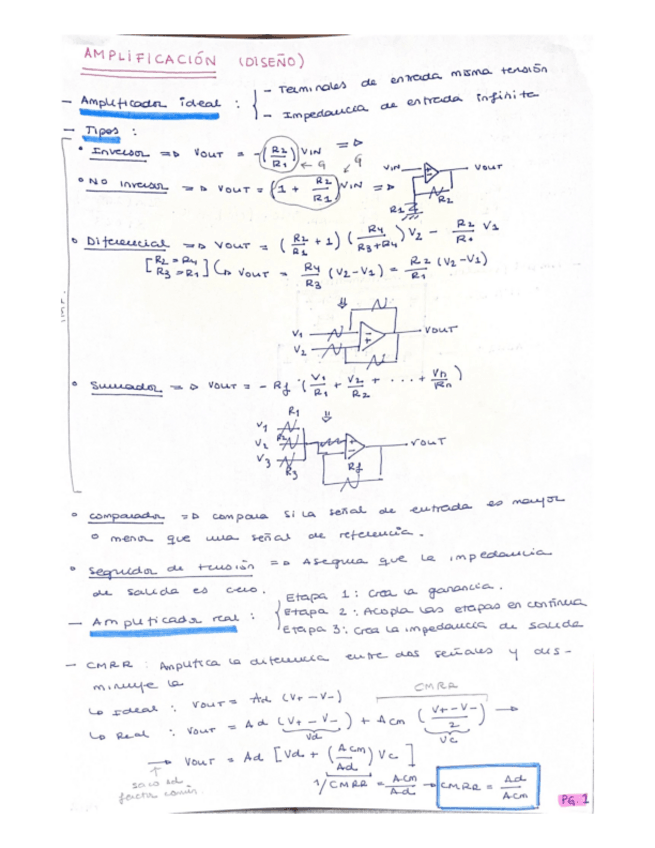 AMPLIFICACIÓN (DISEÑO)
- Amplificador ideal : - Terminales de entrada misma tensión
- Impedancia de entrada infinita
- Tipos :
• Inversor => VOUT = -(R2/R1) VIN =>
← G G
• NO inversor => VOUT = (1 + R2/R1) VIN =>
VIN VOUT
R1 R2
• Diferencial => VOUT = (R2/R1 + 1) (R4/R3+R4) V2 - R2/R1 V1
[R2 = R4 R3 = R1] VOUT = R4/R3 (V2-V1) = R2/R1 (V2-V1)
V1 - VOUT
V2 +
• Sumador => VOUT = - Rf (V1/R1 + V2/R2 + ... + Vn/Rn)
R1
V1
V2 R2 VOUT
V3 R3 Rf
• comparador => compara si la señal de entrada es mayor
o menor que una señal de referencia.
• seguidor de tensión => Asegura que la impedancia
de salida es cero.
- Amplificador real : Etapa 1: Crea la ganancia.
Etapa 2: Acopla las etapas en continua
Etapa 3: Crea la impedancia de salida
- CMRR : Amplifica la diferencia entre dos señales y dis-
minuye la
↳ Ideal : VOUT = Ad (V+ - V-) CMRR
↳ Real : VOUT = Ad (V+ - V-) + Acm (V+ - V-/2) →
Vd Vc
→ VOUT = Ad [Vd + (Acm/Ad) Vc]
↑
saco Ad
factor común.
1/CMRR = Acm/Ad → CMRR = Ad/Acm
PG. 1